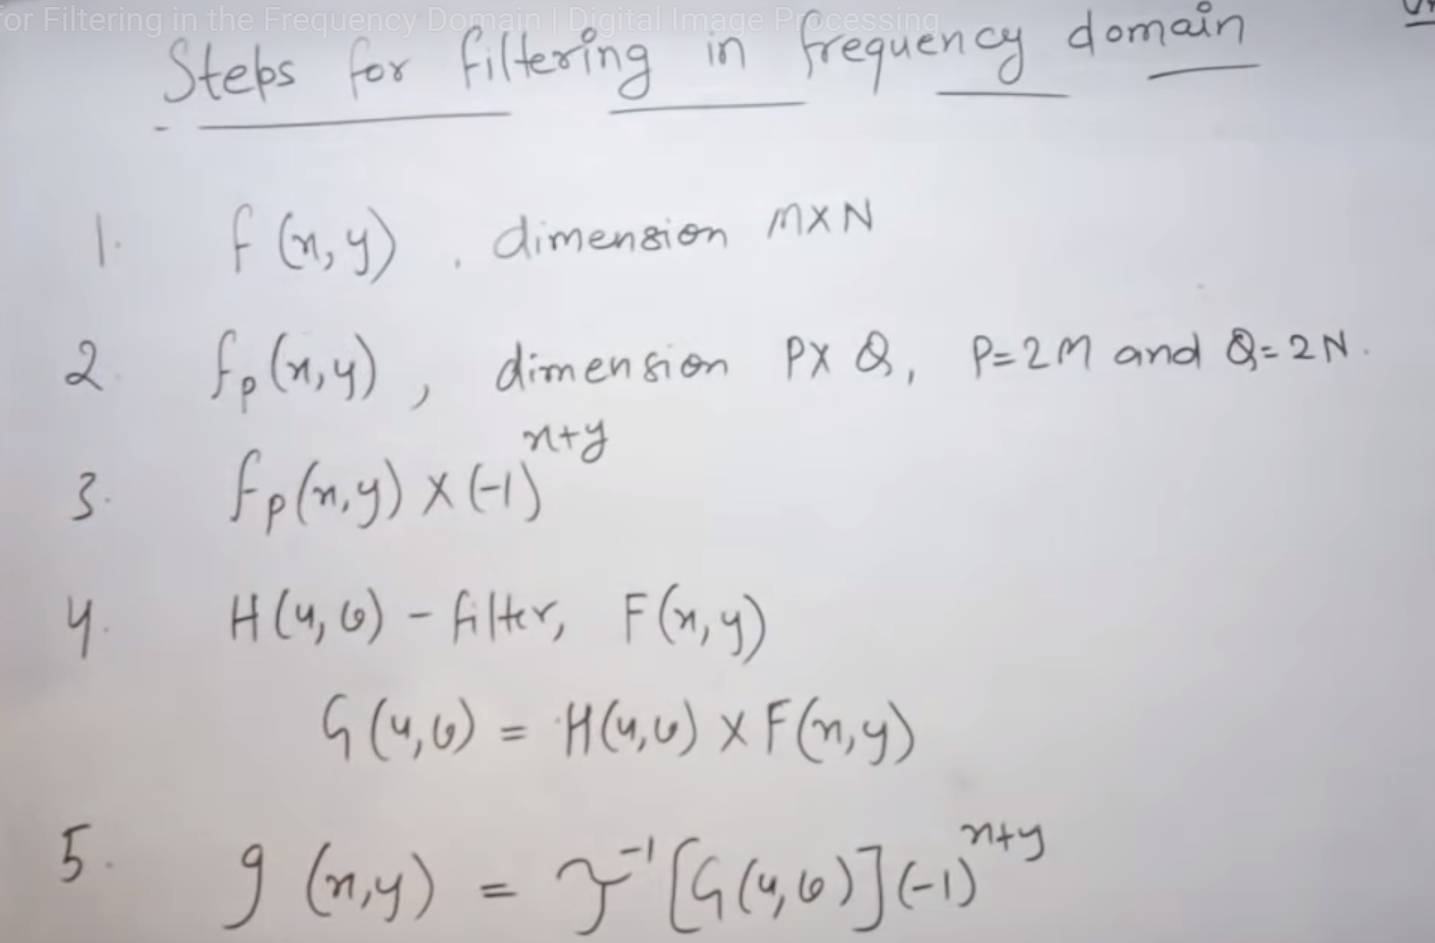 for Filtering in the Frequency Domain | Digital Image Processing
Steps for filtering in frequency domain
1. f(x,y), dimension M×N
2. fp(x,y), dimension P×Q, P=2M and Q=2N.
3. fp(x,y)×(-1)^x+y
4. H(u,v) - filter, F(x,y)
G(u,v) = H(u,v) × F(x,y)
5. g(x,y) = ℱ⁻¹[G(u,v)](-1)^x+y